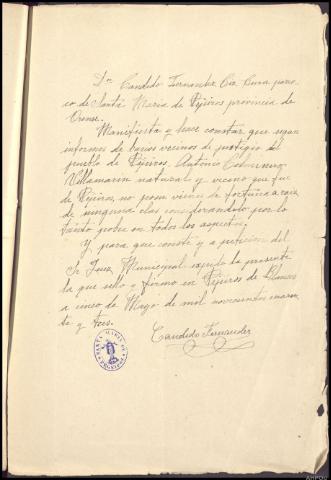 Dn Candido Fernandez Cia Cura parro-
co de Santa Maria de Pejeiros provincia de
Orense.
Manifiesta y hace constar que segun
informes de barios vecinos de prestigio del
pueblo de Pejeiros, Antonio
Villamarin natural y vecino que fue
de Pejeiros, no posee vienes de fortuna a raiz
de ninguna clas considerandolo por lo
tanto pobre en todos los aspectos.
Y para que conste y a peticion del
Sr Juez Municipal expido la presente
la que sello y firmo en Pejeiros de Blancos
a cinco de Mayo de mil novecientos cuaren
ta y tres.
Candido Fernandez
SANTA MARIA DE